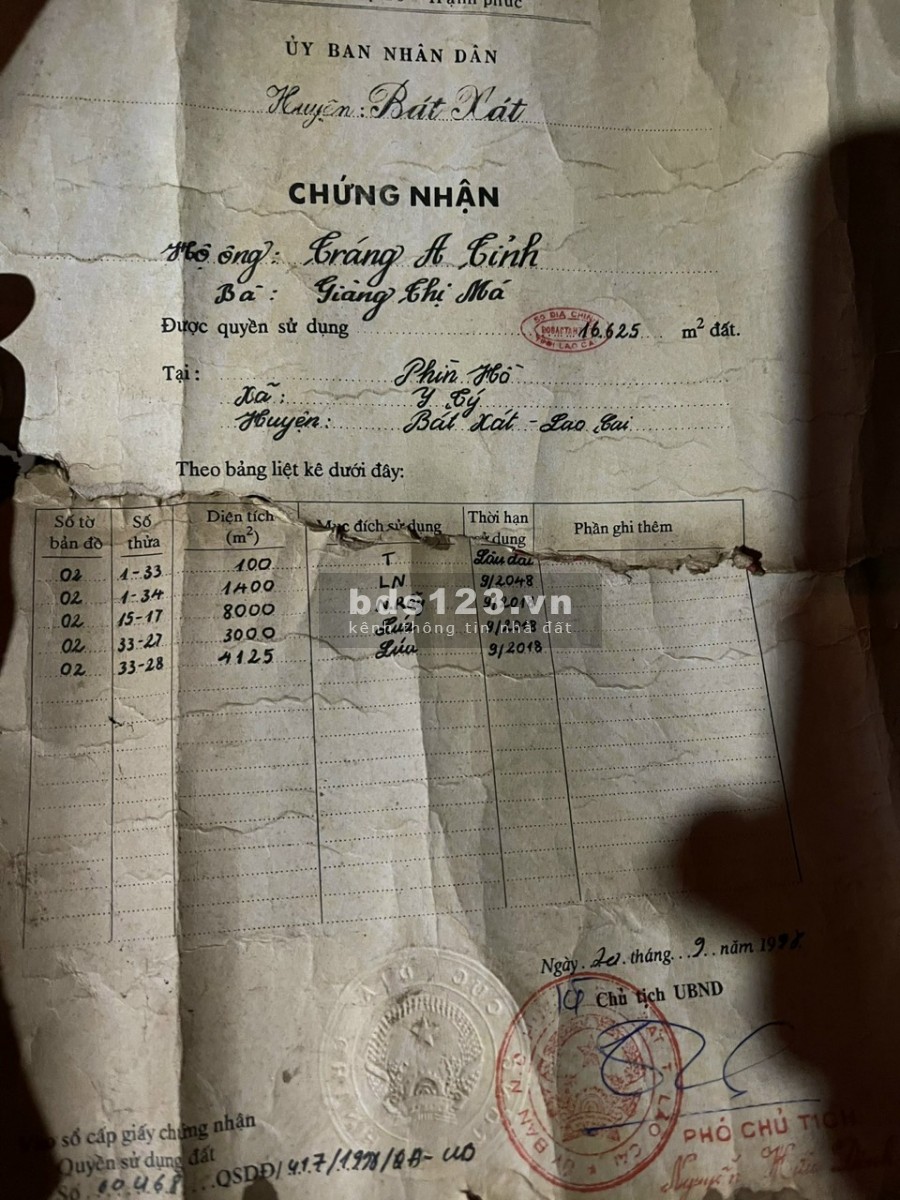 ỦY BAN NHÂN DÂN
Huyện: Bát Xát
CHỨNG NHẬN
Hộ ông: Tráng A Tỉnh
Bà: Giàng Thị Má
Được quyền sử dụng 16.625 m² đất.
Tại: Phìn Hồ
Xã: Y Tý
Huyện: Bát Xát - Lao Cai
Theo bảng liệt kê dưới đây:
Số tờ bản đồ Số thửa Diện tích (m²) Mục đích sử dụng Thời hạn sử dụng Phần ghi thêm
02 1-33 100 T Lâu dài
02 1-34 1400 LN 9/2048
02 15-17 8000 N.Rẫy 9/2018
02 33-27 3000 Lúa 9/2018
02 33-28 4125 Lúa 9/2018
bds123.vn
kênh thông tin nhà đất
Ngày 20 tháng 9 năm 1998
Chủ tịch UBND
PHÓ CHỦ TỊCH
Vào sổ cấp giấy chứng nhận
Quyền sử dụng đất
Số 10468 QSDĐ/417/1998/QĐ-UB